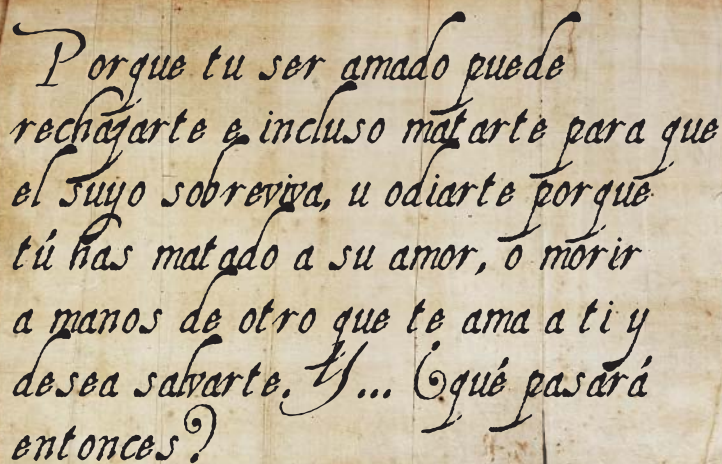 Porque tu ser amado puede
rechazarte e incluso matarte para que
el suyo sobreviva, u odiarte porque
tú has matado a su amor, o morir
a manos de otro que te ama a ti y
desea salvarte. Y... ¿qué pasará
entonces?